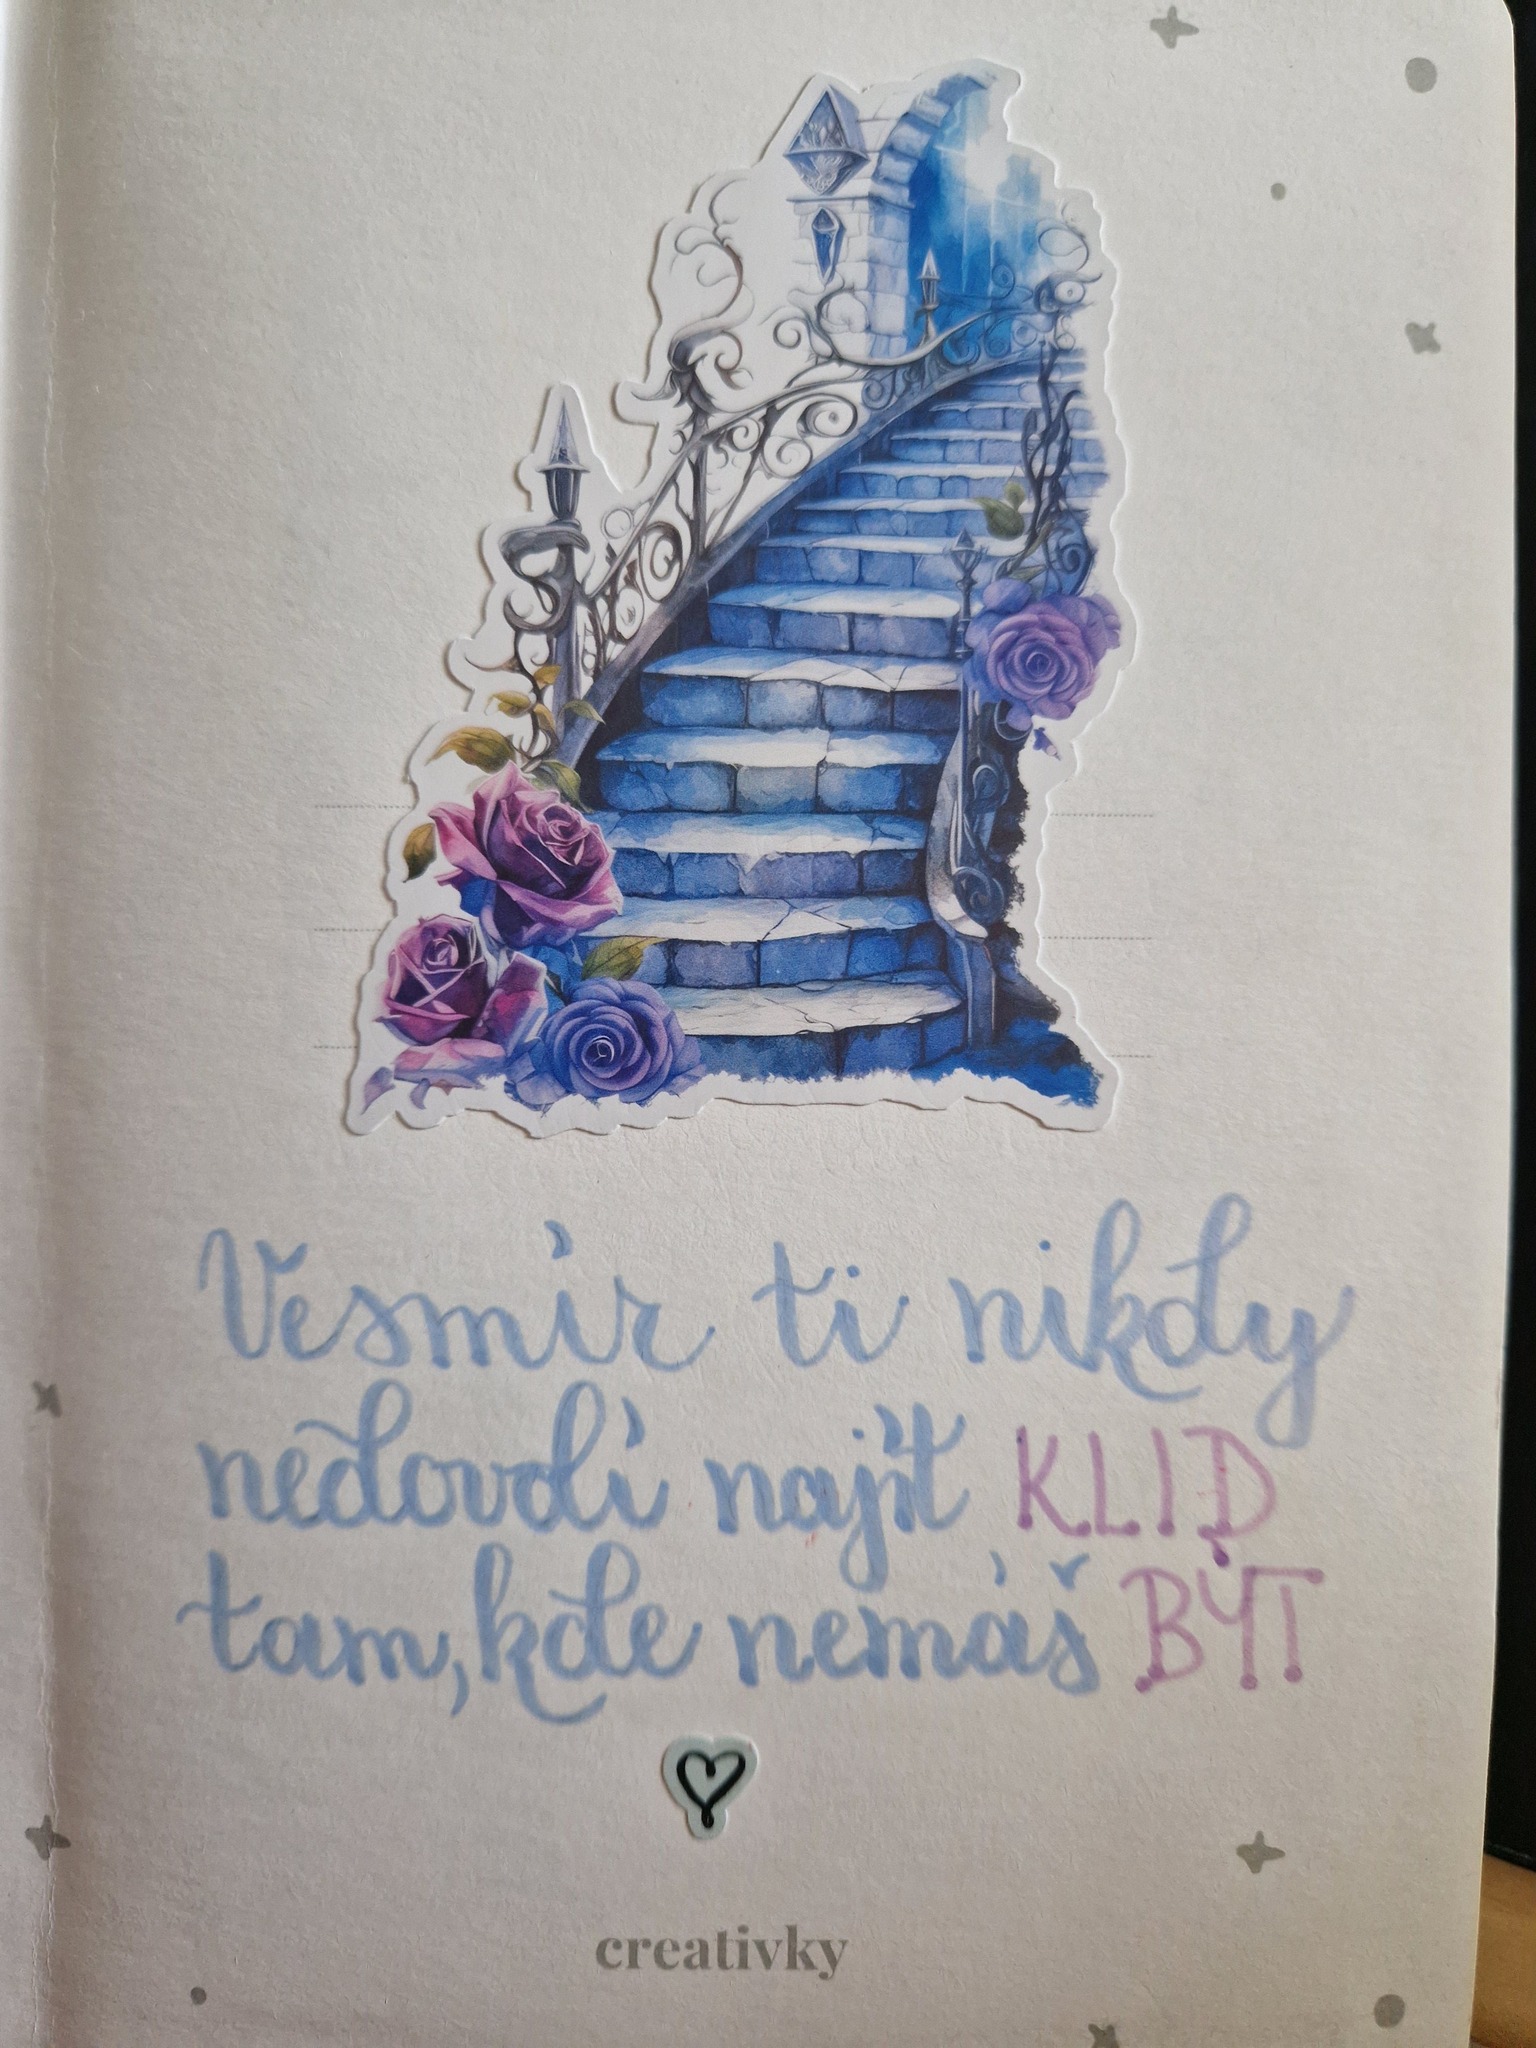 Vesmír ti nikdy
nedovolí najít KLID
tam, kde nemáš BÝT
creativky